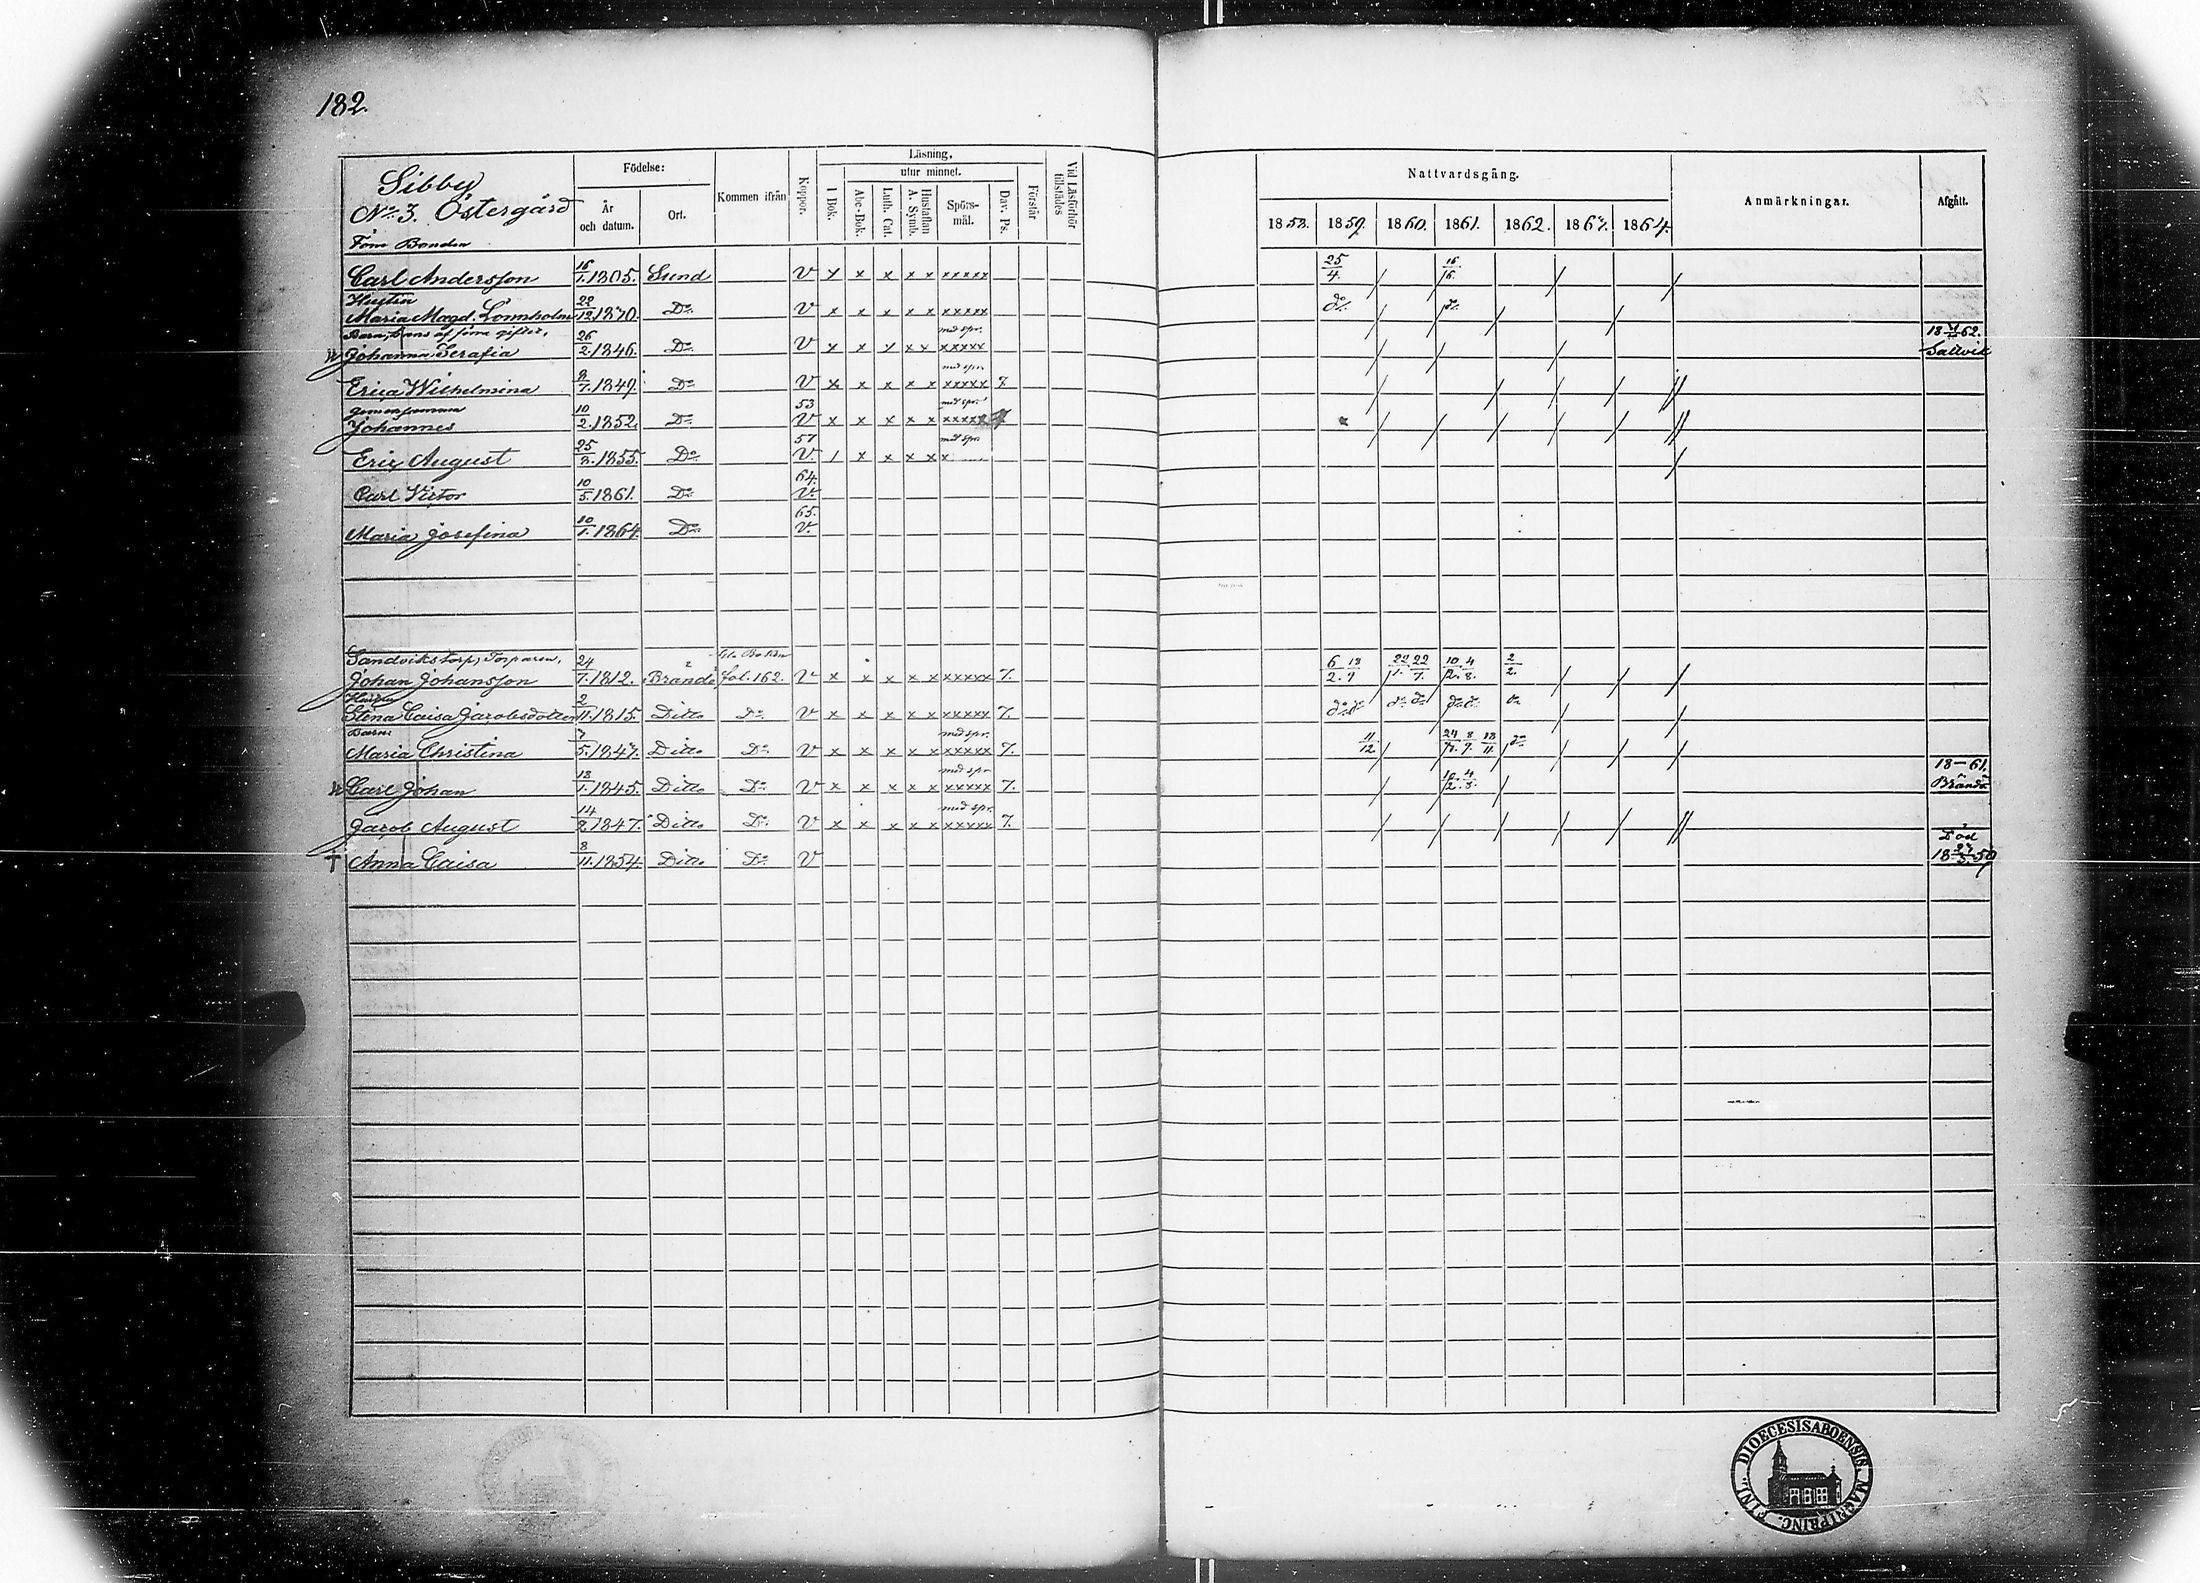 182.
Sibby
No 3. Östergård
Födelse:
År och datum.
Ort.
Kommen ifrån
Koppor.
Läsning,
utur minnet.
I Bok.
Abc-Bok.
Luth. Cat.
Hustaflan A. Symb.
Spörsmål.
Dav. Ps.
Förstår
Vid Läsförhör tillstädes
Nattvardsgång.
1858. 1859. 1860. 1861. 1862. 1863. 1864.
Anmärkningar.
Afgått.
Bonden
Carl Andersson 16/1. 1805. Sund V x x x x x xxxxx 25/4. 16/6.
Hustru
Maria Magd. Lönnholm 22/12 1830. Do V x x x x x xxxxx do do
Barn, hans af förra giftet,
Johanna Serafia 26/2. 1846. Do V x x x x x med spr. xxxxx 18 62. Saltvik
Erica Wilhelmina 8/7. 1849. Do V x x x x x med spr. xxxxx 7.
gemensamma
Johannes 10/2. 1852. Do 53 V x x x x x med spr. xxxxx
Eric August 25/3. 1855. Do 57 V. / x x x x med spr. x
Carl Victor 10/5. 1861. Do 64. V.
Maria Josefina 10/1. 1864. Do 65. V.
Sandviks torp, Torparen,
Johan Johansson 24/7. 1812. Brändö fol. 162. V x x x x x xxxxx 7. 6/2. 18/9 22/1. 22/7. 10/2. 4/8. 2/2.
Hustru
Stina Caisa Jacobsdotter 2/11. 1815. Ditto Do V x x x x x xxxxx 7. do do do do do do do
Barn:
Maria Christina 7/5. 1843. Ditto Do V x x x x x med spr. xxxxx 7. 11/12. 24/3. 8/9. 18/11. do
Carl Johan 13/1. 1845. Ditto Do V x x x x x med spr. xxxxx 7. 10/2. 4/8. 18—61. Brändö
Jacob August 14/2. 1847. Ditto Do V x x x x x med spr. xxxxx 7.
† Anna Caisa 8/11. 1854. Ditto Do V Död 18 23/3. 59
FINL. DIOECESIS ABOENSIS. MAGNI PRINC.